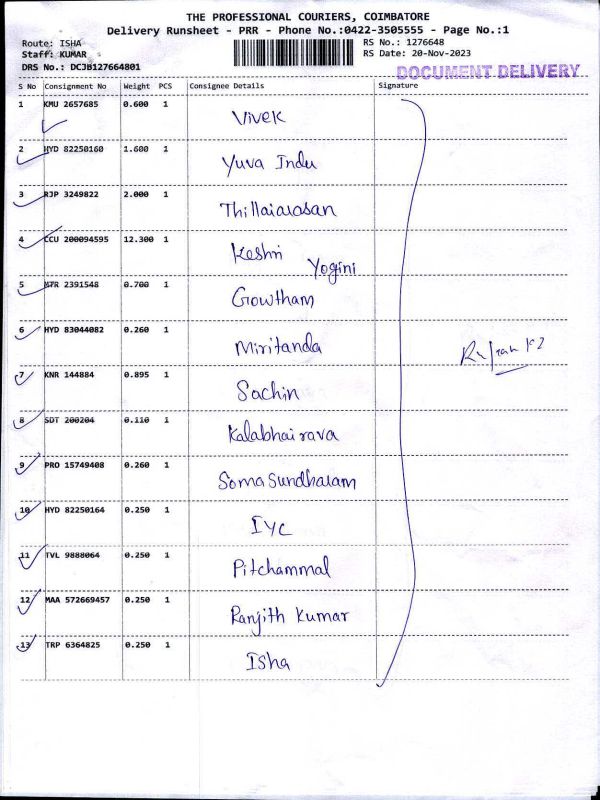 THE PROFESSIONAL COURIERS, COIMBATORE
Delivery Runsheet - PRR - Phone No.:0422-3505555 - Page No.:1
Route: ISHA
Staff: KUMAR
DRS No.: DCJB127664801
RS No.: 1276648
RS Date: 20-Nov-2023
DOCUMENT DELIVERY
S No Consignment No Weight PCS Consignee Details Signature
1 KMU 2657685 0.600 1 Vivek
2 HYD 82250160 1.600 1 Yuva Indu
3 RJP 3249822 2.000 1 Thillaiarasan
4 CCU 200094595 12.300 1 Keshri Yogini
5 MTR 2391548 0.700 1 Gowtham
6 HYD 83044082 0.260 1 Miritanda
7 KNR 144884 0.895 1 Sachin
8 SDT 200204 0.110 1 Kalabhairava
9 PRO 15749408 0.260 1 Soma Sundharam
10 HYD 82250164 0.250 1 IYC
11 TVL 9888064 0.250 1 Pitchammal
12 MAA 572669457 0.250 1 Ranjith Kumar
13 TRP 6364825 0.250 1 Isha